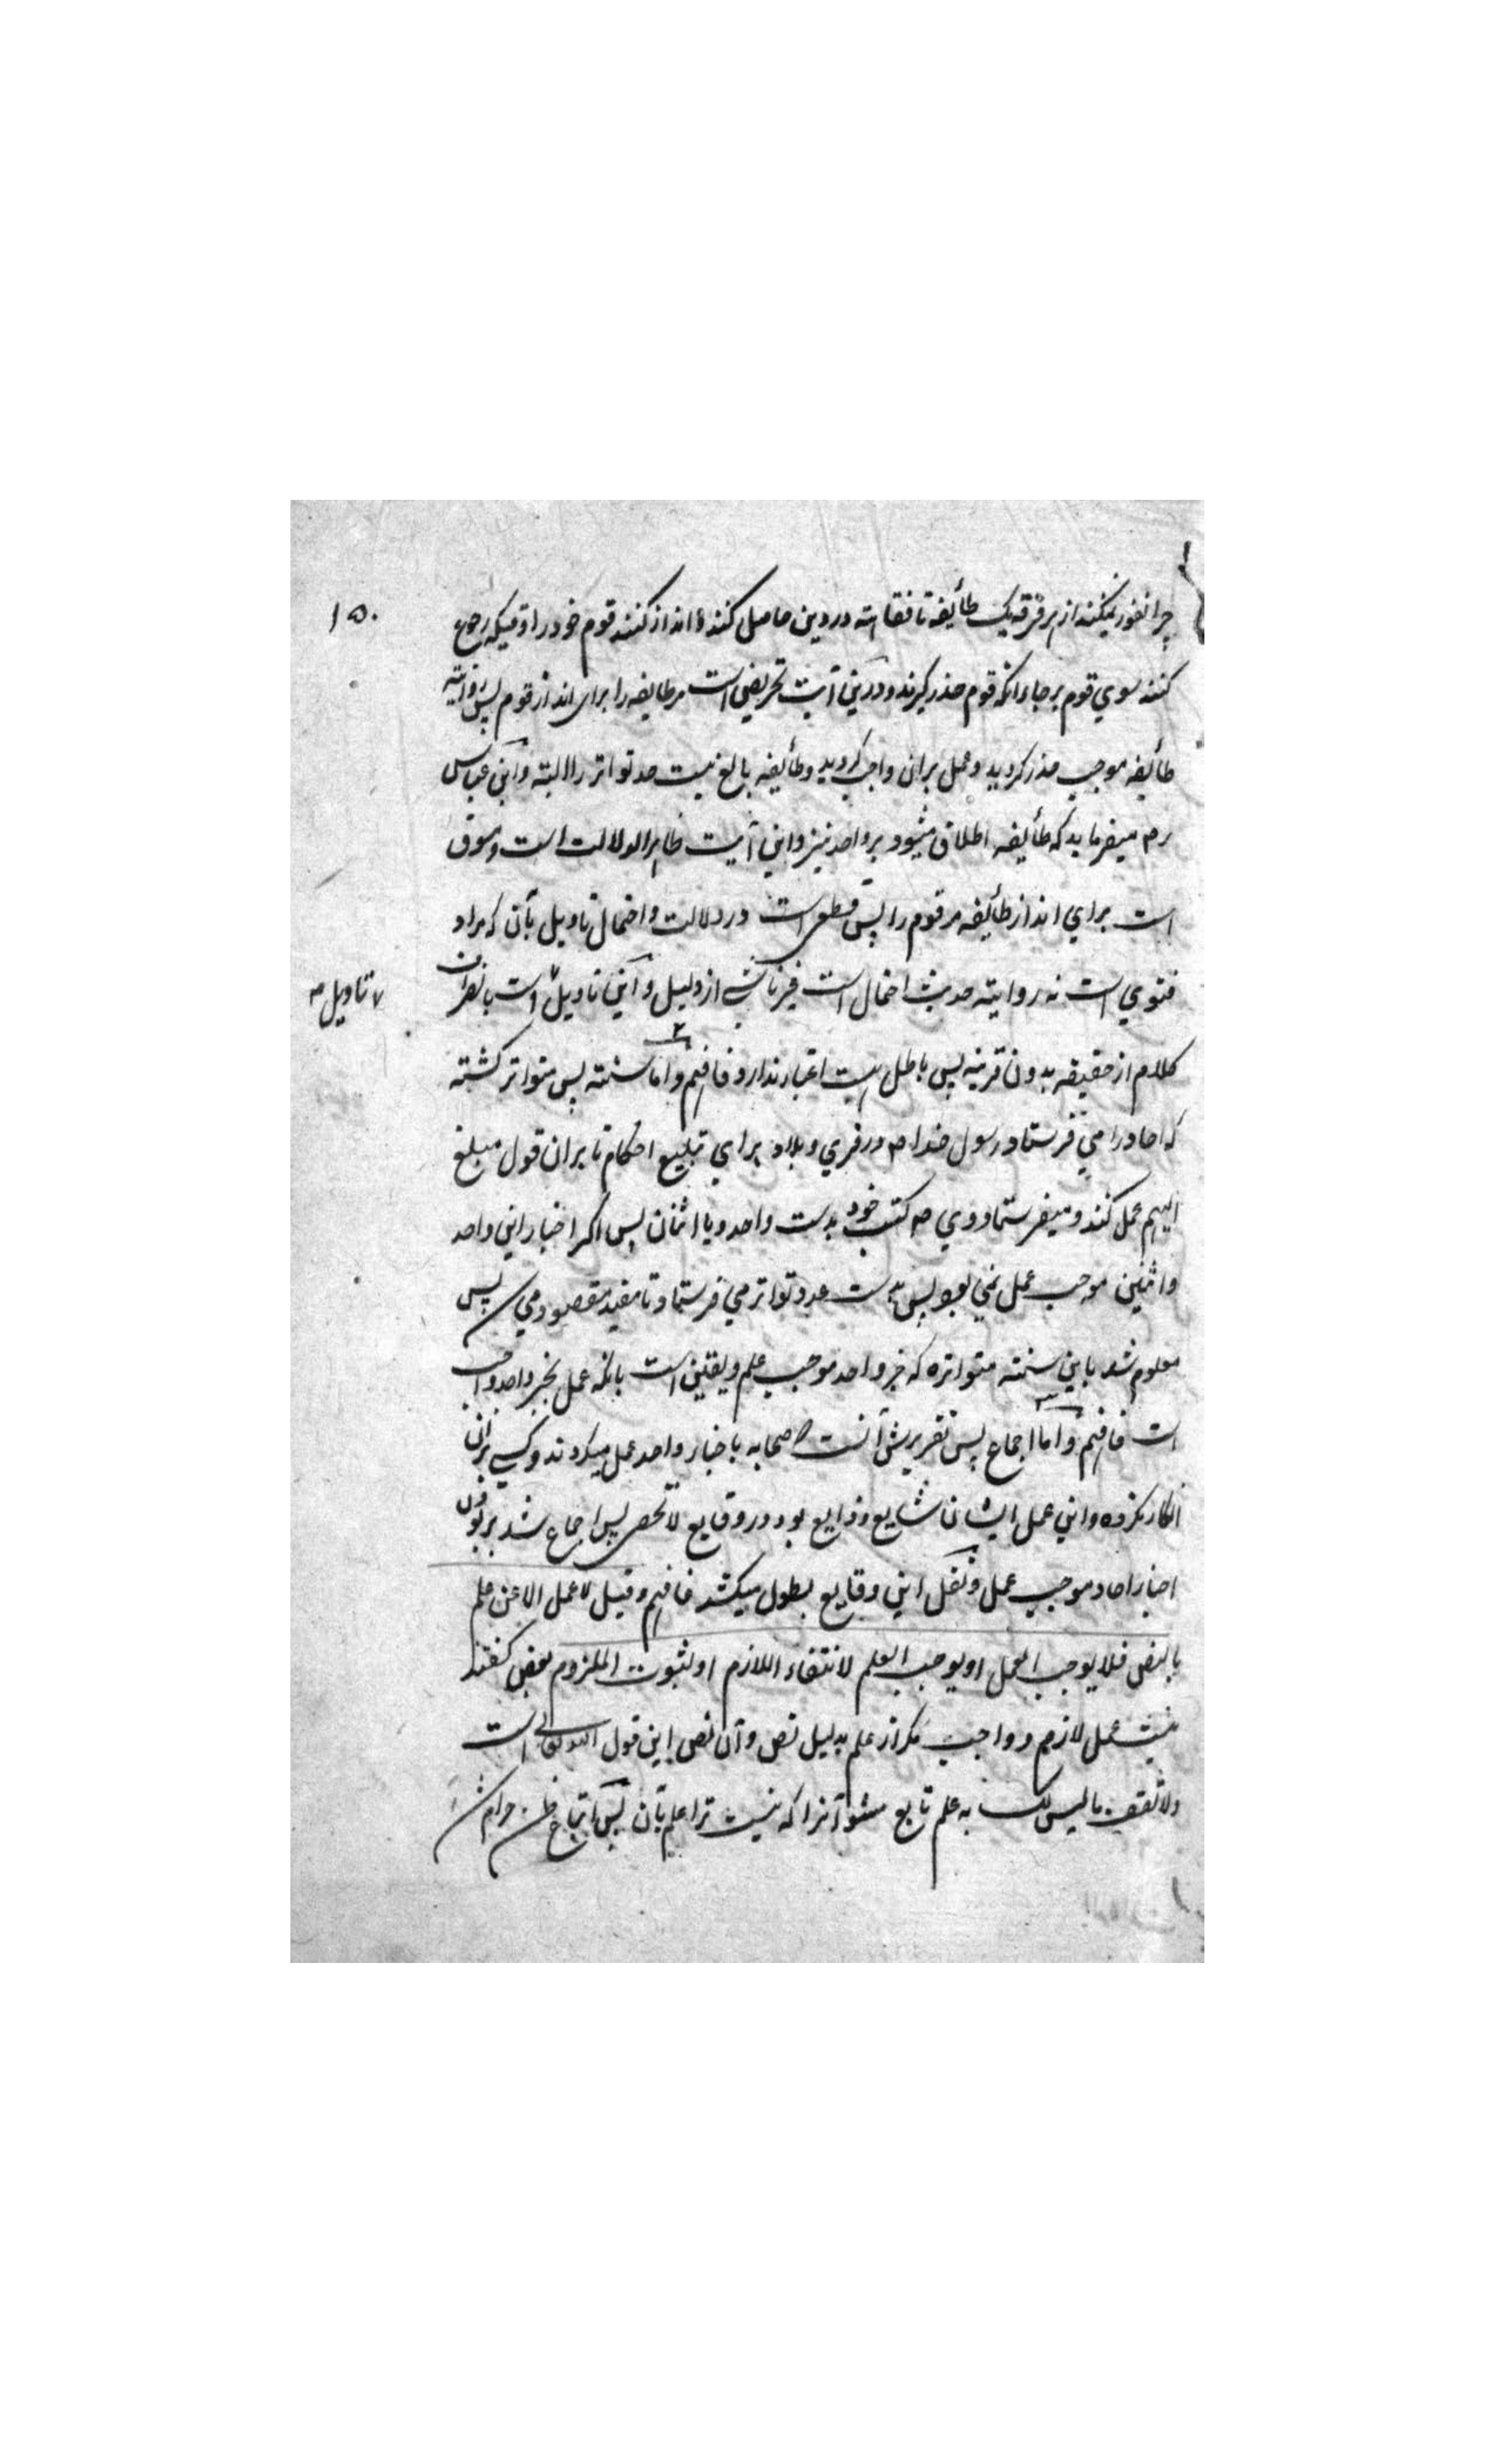 ۱۵۰
چرا نفور نمیکنند از هر فرقه یک طأیفه تا فقاهته در دین حاصل کنند و انذار کنند قوم خود را وقتیکه رجوع
کنند سوي قوم بر جاء انکه قوم حذر گیرند و درین آیت تحریض است مر طایفه را برای انذار قوم پس روایته
طأیفه موجب حذر گردید و عمل بران واجب گردید و طأیفه بالغ نیست حد تواتر را البته و ابن عباس
رم میفرماید که طأیفه اطلاق میشود بر واحد نیز و این آیت ظاهر الدلالت است و مسوق
است براي انذار طأیفه مر قوم را پس قطعی است در دلالت و احتمال تاویل بآن که مراد
فتوي است نه روایته حدیث احتمال است غیر ناشي از دلیل و این تاویل است بانصراف
تاویل صه
کلام از حقیقه بدون قرینه پس باطل است اعتبار ندارد فافهم و اما سنته پس متواتر گشته
که احاد را مي فرستاد رسول خدا صم در قري و بلاد براي تبلیغ احکام تا بران قول مبلغ
الیهم عمل کنند و میفرستاد وي صم کتب خود بدست واحد و یا اثنان پس اگر اخبار این واحد
و اثنین موجب عمل نمي بود پس بدست عدد تواتر مي فرستاد تا مفید مقصود مي شد پس
معلوم شد باین سنته متواتره که خبر واحد موجب علم و یقین است بانکه عمل بخبر واحد واجب
است فافهم و اما اجماع پس تقریرش آنست که صحابه باخبار واحد عمل میکردند و کسے بران
انکار نکرده و این عمل ایشان شایع و ذایع بود در وقایع لا تحصی پس اجماع شد بر بودن
اخبار احاد موجب عمل و نقل این وقایع بطول میکشد فافهم و قیل لا عمل الا عن علم
بالنص فلا یوجب العمل او یوجب العلم لانتفاء اللازم او لثبوت الملزوم بعض گفتند
نیست عمل لازم و واجب مگر از علم بدلیل نص و آن نص این قول الله تعالی است
ولا تقف ما لیس لک به علم تابع مشو آنرا که نیست ترا علم بآن پس اتباع ظن حرام شد